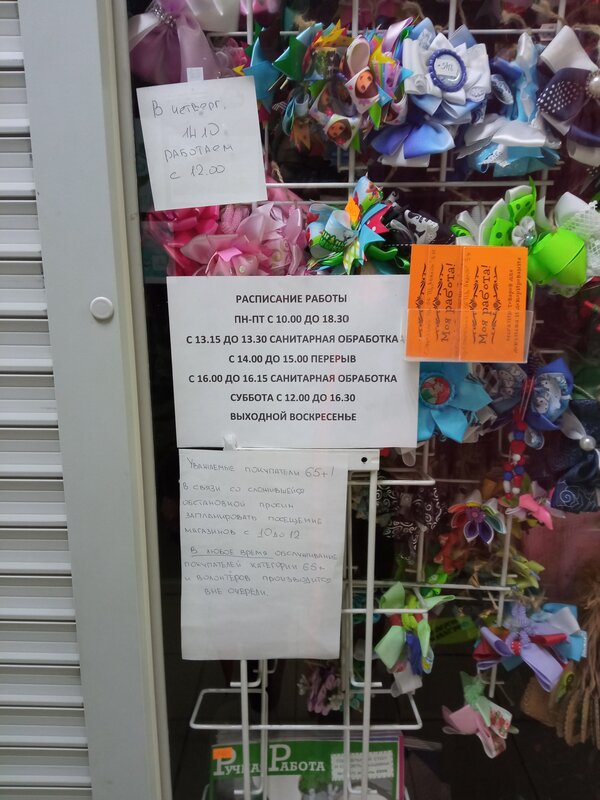 В ЧЕТВЕРГ.
14.10
РАБОТАЕМ
С 12.00
РАСПИСАНИЕ РАБОТЫ
ПН-ПТ С 10.00 ДО 18.30
С 13.15 ДО 13.30 САНИТАРНАЯ ОБРАБОТКА
С 14.00 ДО 15.00 ПЕРЕРЫВ
С 16.00 ДО 16.15 САНИТАРНАЯ ОБРАБОТКА
СУББОТА С 12.00 ДО 16.30
ВЫХОДНОЙ ВОСКРЕСЕНЬЕ
Моя работа!
Моя работа!
магазин товаров для
УВАЖАЕМЫЕ ПОКУПАТЕЛИ 65+!
В СВЯЗИ СО СЛОЖИВШЕЙСЯ
ОБСТАНОВКОЙ ПРОСИМ
ЗАПЛАНИРОВАТЬ ПОСЕЩЕНИЕ
МАГАЗИНОВ С 10 ДО 12
В ЛЮБОЕ ВРЕМЯ ОБСЛУЖИВАНИЕ
ПОКУПАТЕЛЕЙ КАТЕГОРИИ 65+
И ВОЛОНТЁРОВ ПРОИЗВОДИТСЯ
ВНЕ ОЧЕРЕДИ.
РУЧНАЯ РАБОТА